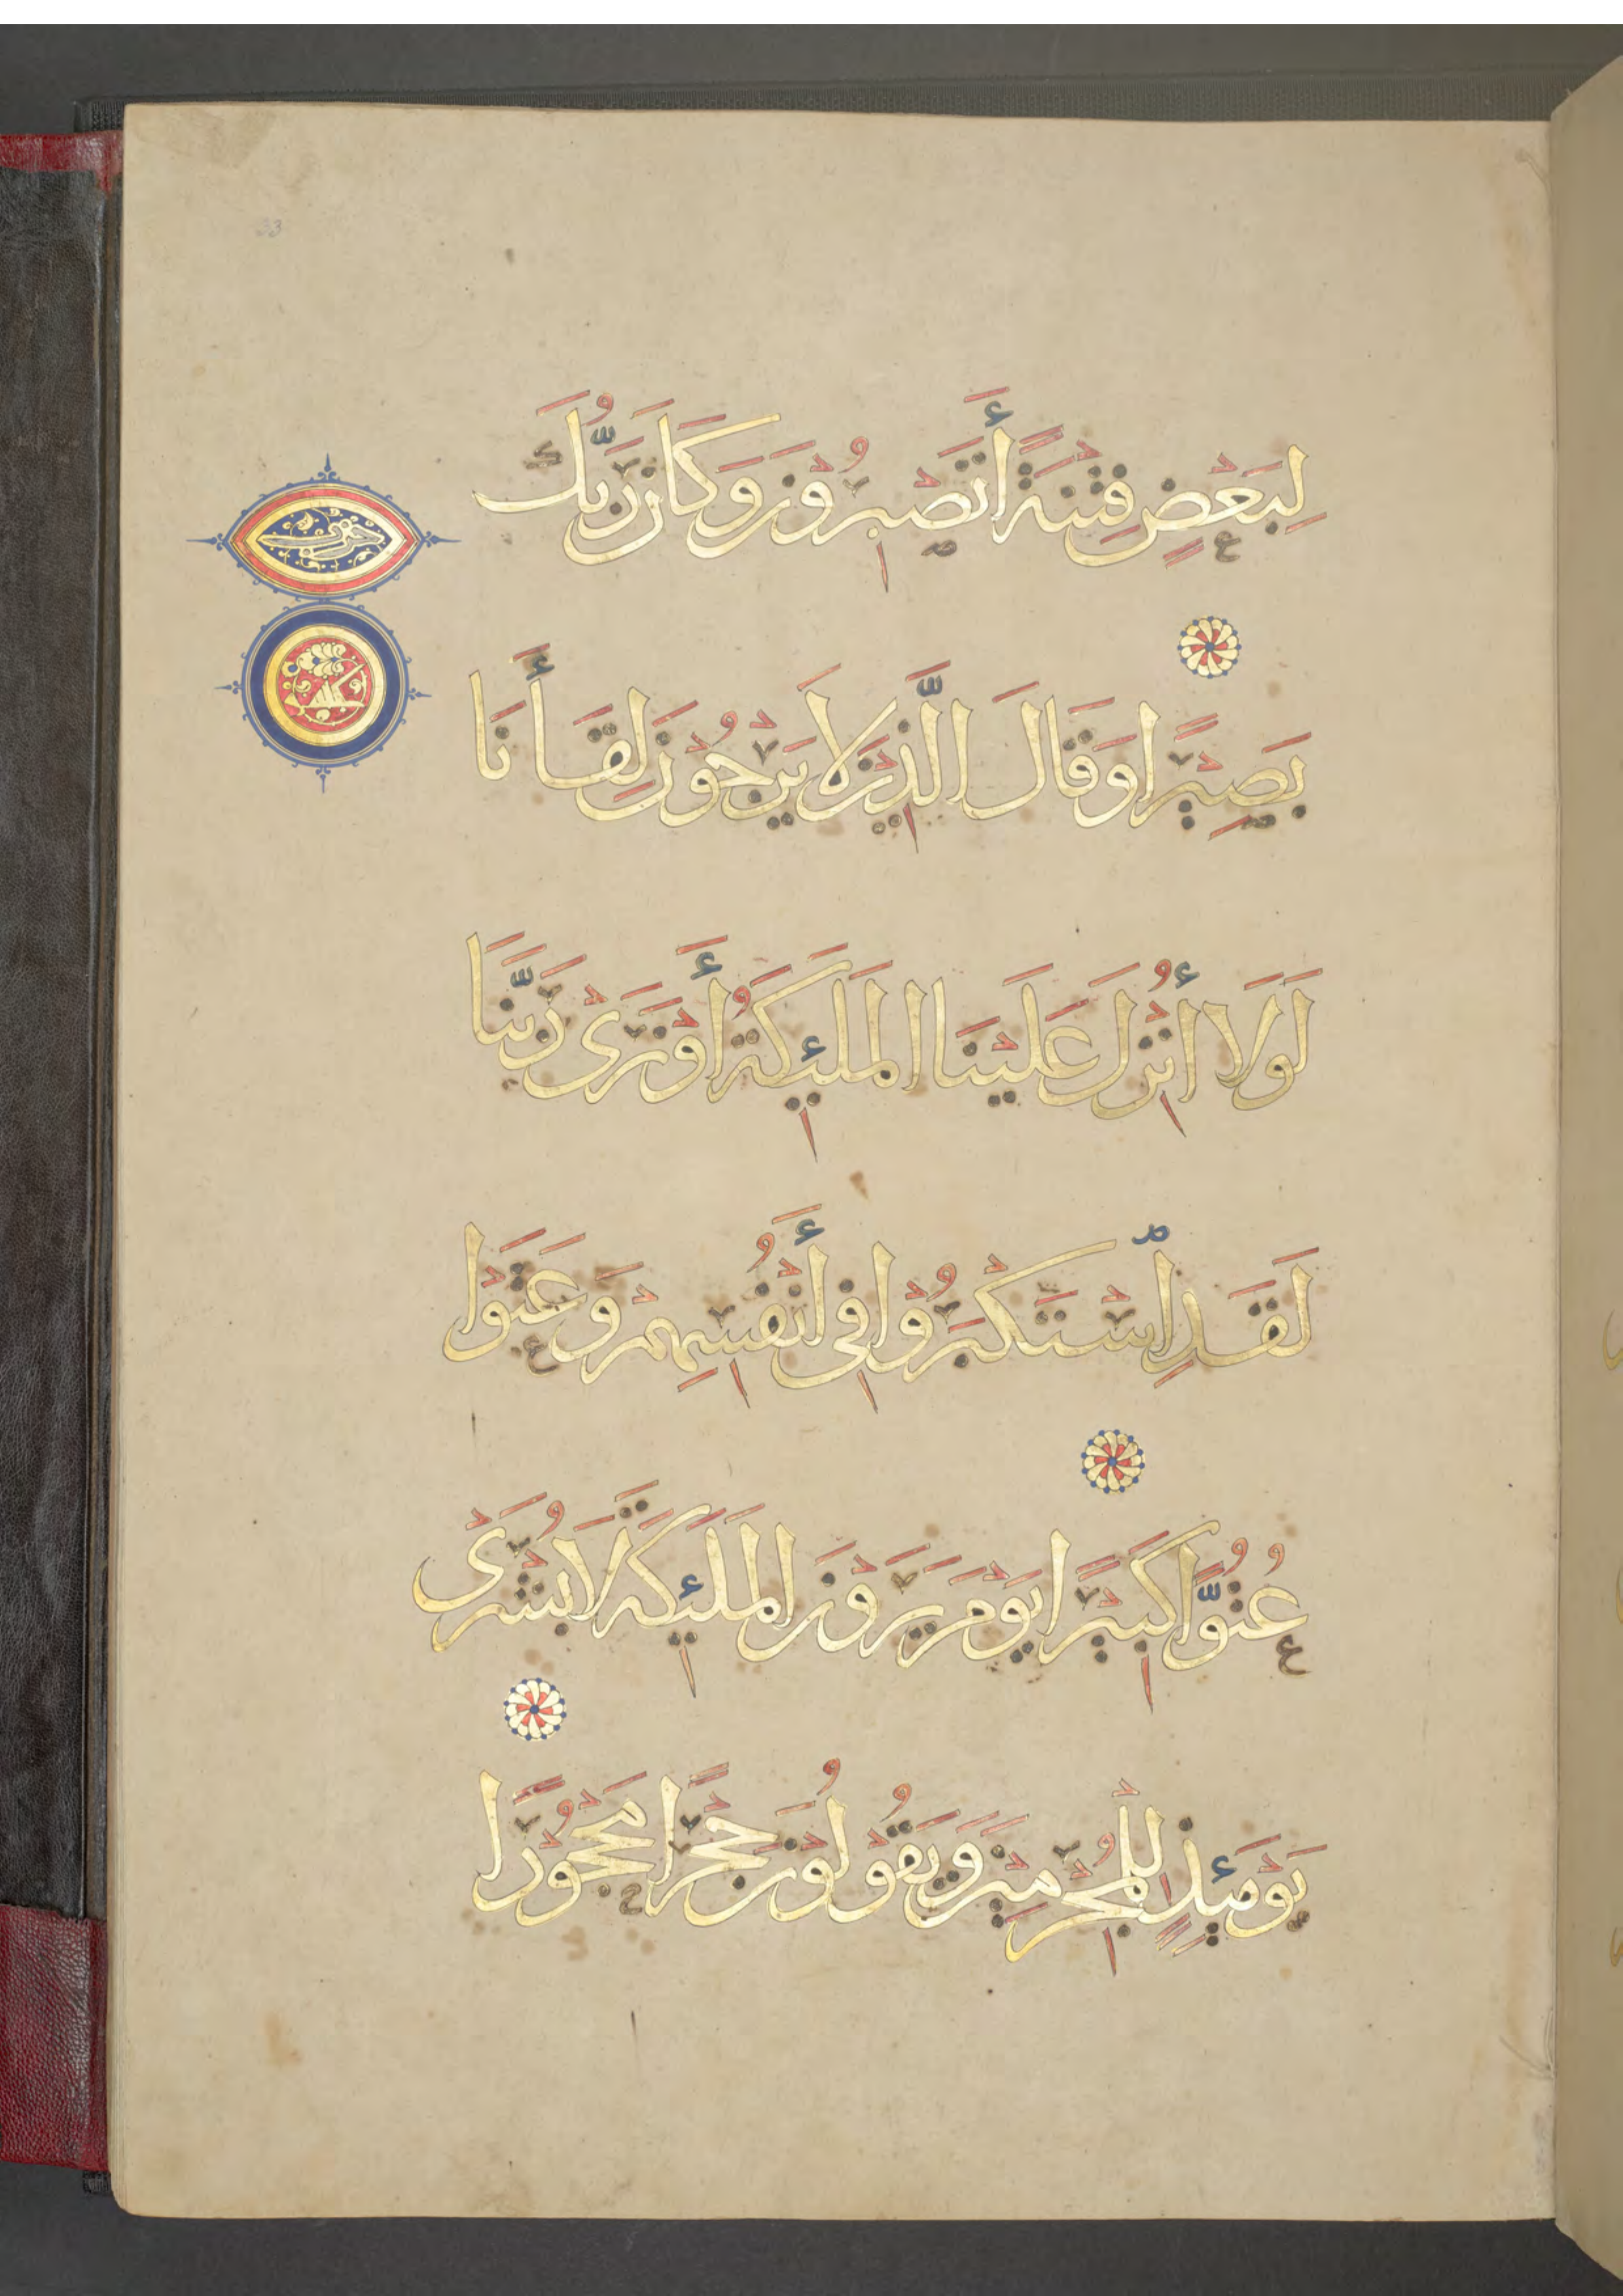 33
لِبَعْضٍ فِتْنَةً أَتَصْبِرُونَ وَكَانَ رَبُّكَ
بَصِيْرًا وَقَالَ الَّذِيْنَ لَا يَرْجُوْنَ لِقَاأَنَا
لَوْلَا أُنْزِلَ عَلَيْنَا الْمَلَئِكَةُ أَوْ نَرَى رَبَّنَا
لَقَدِ اسْتَكْبَرُوْا فِي أَنْفُسِهِمْ وَعَتَوْا
عُتُوًّا كَبِيْرًا يَوْمَ يَرَوْنَ الْمَلَئِكَةَ لَا بُشْرَى
يَوْمَئِذٍ لِلْمُجْرِمِيْنَ وَيَقُوْلُوْنَ حِجْرًا مَحْجُوْرًا
حزب